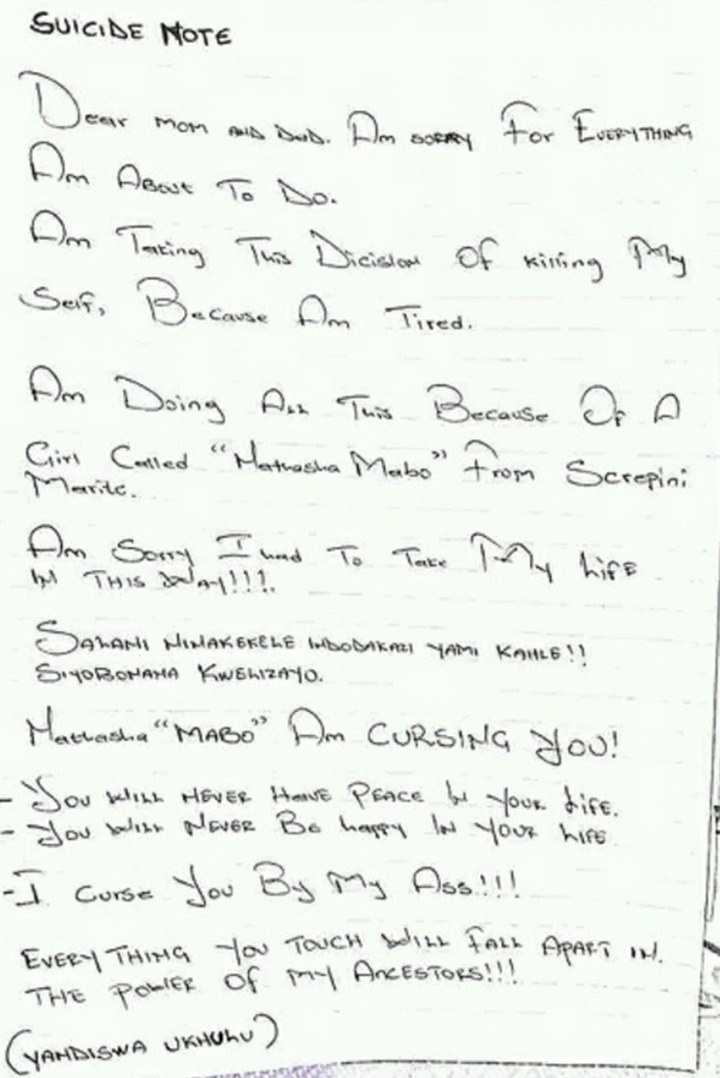 SUICIDE NOTE
Dear MOM AND DAD. Am SORRY For EVERYTHING
Am About To Do.
Am Taking This Dicision Of killing My
Self, Because Am Tired.
Am Doing All This Because Of A
Girl Called "Nathasha Mabo" From Screpini
Marite.
Am Sorry I had To Take My LIFE
IN THIS WAY!!!.
SALANI NINAKEKELE INDODAKAZI YAMI KAHLE!!
SIYOBONANA KWELIZAYO.
Nathasha "MABO" Am CURSING YOU!
- You WILL NEVER Have PEACE IN YOUR LIFE.
- You WILL NEVER Be happy IN YOUR LIFE
- I Curse You By My Ass!!!
EVERYTHING YOU TOUCH WILL FALL APART IN.
THE POWER OF MY ANCESTORS!!!
(YANDISWA UKHULU)